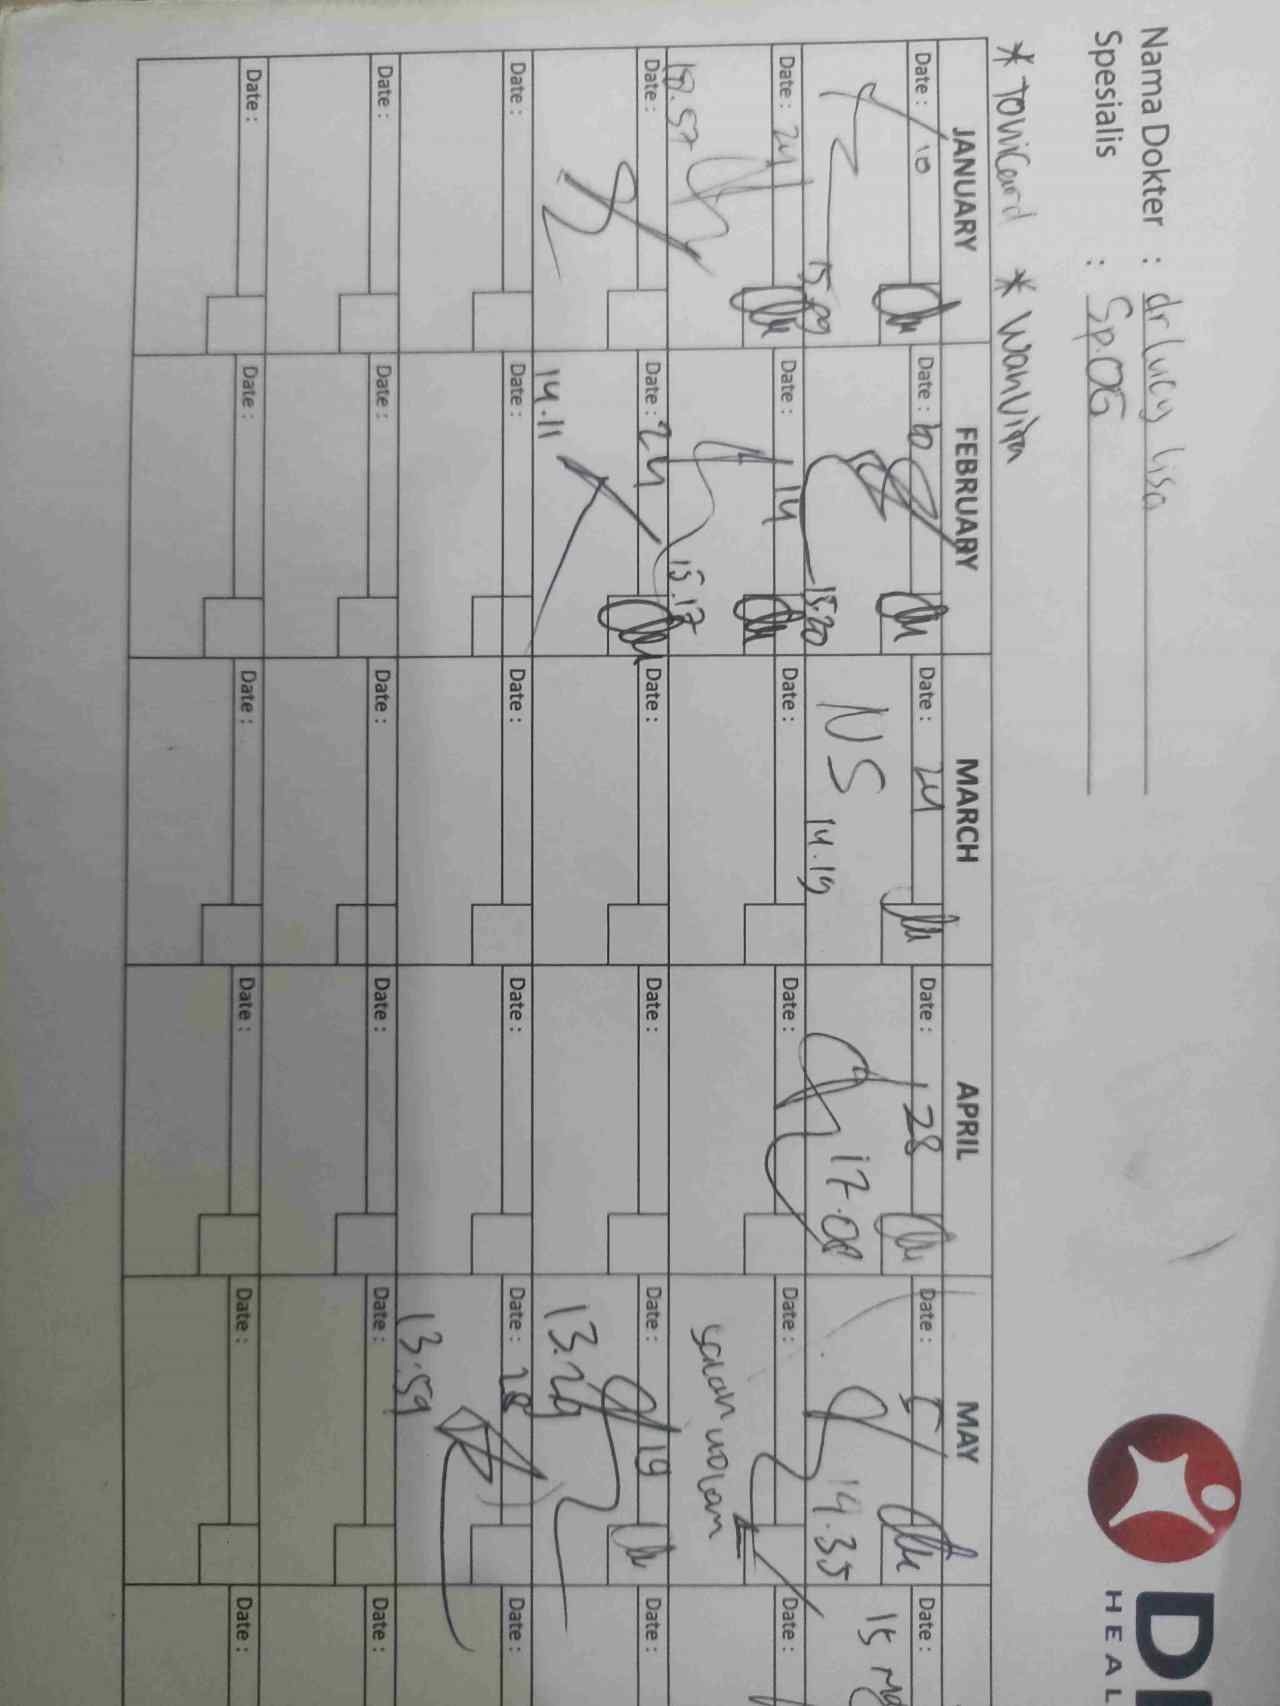 Nama Dokter : dr Luicy Lisa
Spesialis : Sp.OG
* TOWiCard * Wanvita
DI
HEAL
JANUARY FEBRUARY MARCH APRIL MAY
Date : 10 Date : 10 Date : 24 Date : 28 Date : 5 Date :
15.09 15.20 NS 14.19 17.08 14.35 15
Date : 24 Date : 14 Date : Date : Date : Date :
18.57 15.17
Date : Date : 24 Date : Date : Date : 19 Date :
14.11 13.29
Date : Date : Date : Date : Date : 28 Date :
13.59
Date : Date : Date : Date : Date : Date :
Date : Date : Date : Date : Date : Date :